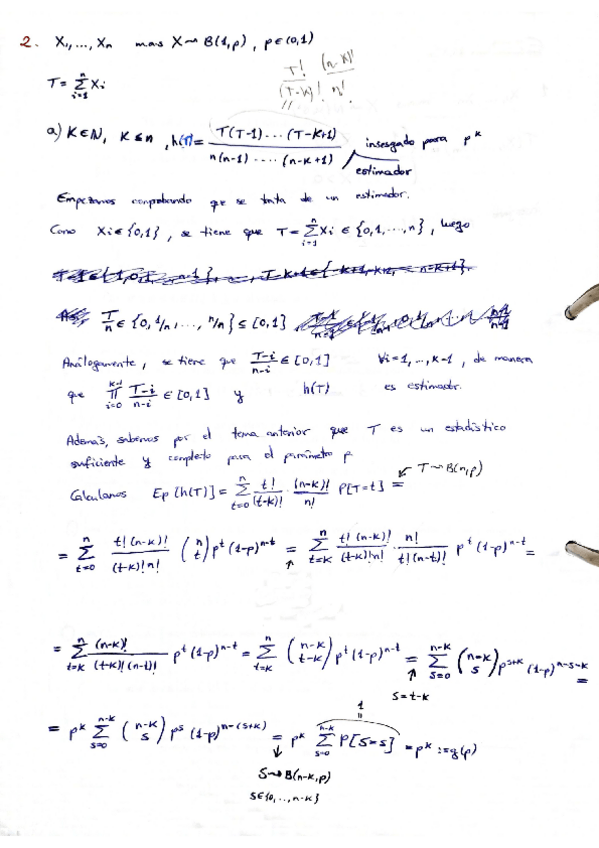 2. X₁,...,Xₙ mas X⇝B(1,p), p∈(0,1)
T!/(T-k)! (n-k)!/n!
T = Σⁿᵢ₌₁ Xᵢ
a) K∈N, K≤n, h(T) = T(T-1)...(T-K+1) / n(n-1)....(n-K+1) insesgado para p^k
estimador
Empezamos comprobando que se trata de un estimador.
Como Xᵢ∈{0,1}, se tiene que T = Σⁿᵢ₌₁ Xᵢ ∈ {0,1,...,n}, luego
T/n ∈ {0, 1/n, ..., n/n} ⊆ [0,1]
Análogamente, se tiene que T-i/n-i ∈ [0,1] ∀i=1,...,k-1, de manera
que ∏ᵏ⁻¹ᵢ₌₀ T-i/n-i ∈ [0,1] y h(T) es estimador.
Además, sabemos por el tema anterior que T es un estadístico
suficiente y completo para el parámetro p
T⇝B(n,p)
Calculamos Ep[h(T)] = Σⁿₜ₌₀ t!/(t-k)! · (n-k)!/n! P[T=t] =
= Σⁿₜ₌₀ t!(n-k)!/(t-k)!n! (n t) p^t (1-p)^n-t = Σⁿₜ₌ₖ t!(n-k)!/(t-k)!n! · n!/t!(n-t)! p^t (1-p)^n-t =
= Σⁿₜ₌ₖ (n-k)!/(t-k)!(n-t)! p^t (1-p)^n-t = Σⁿₜ₌ₖ (n-k t-k) p^t (1-p)^n-t = Σⁿ⁻ᵏₛ₌₀ (n-k s) p^s+k (1-p)^n-s-k =
s=t-k
= p^k Σⁿ⁻ᵏₛ₌₀ (n-k s) p^s (1-p)^n-(s+k) = p^k Σⁿ⁻ᵏₛ₌₀ P[S=s] = p^k := g(p)
1
=
S⇝B(n-k,p)
S∈{0,...,n-k}